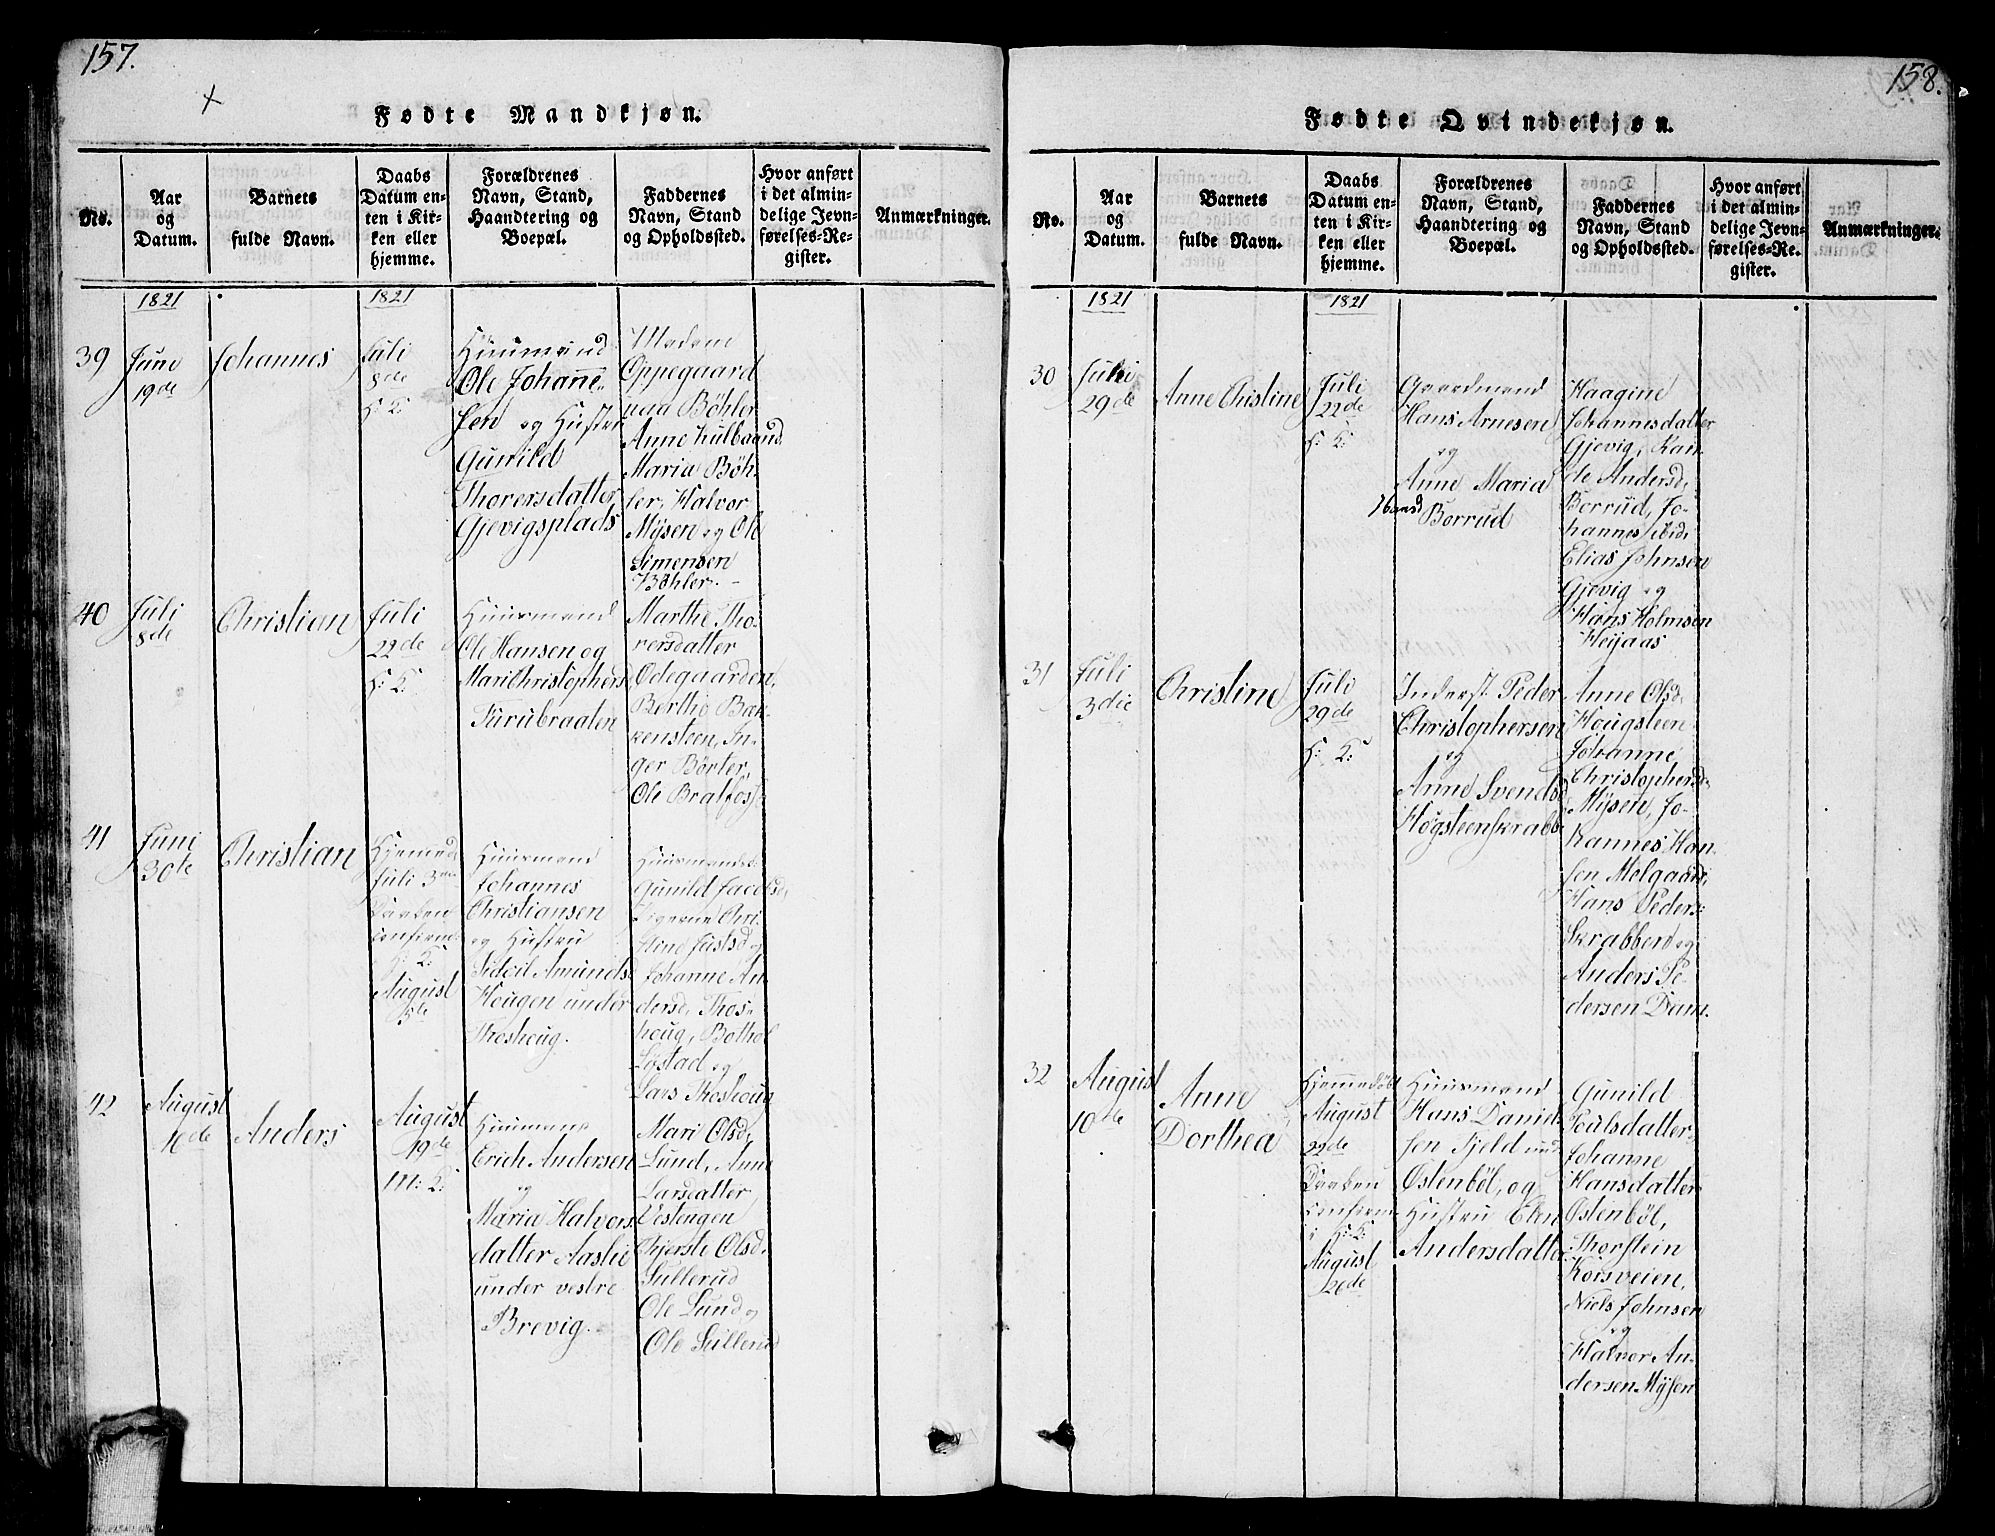 157.
Fødte Mandkjøn.
No.
Aar
og
Datum.
Barnets
fulde Navn.
Daabs
Datum en-
ten i Kir-
ken eller
hjemme.
Forældrenes
Navn, Stand,
Haandtering og
Boepæl.
Faddernes
Navn, Stand
og Opholdssted.
Hvor anført
i det almin-
delige Jevn-
førelses-Re-
gister.
Anmærkninger.
1821
1821
39
June
19de
Johannes
Juli
8de
H: K:
Huusmand
Ole Johanne-
sen og Hustru
Gunild
Thorersdatter
Gjevigsplads
Madam
Oppegaard
paa Bøhler
Anne
Maria Bøh-
ler, Halvor
Mysen og Ole
Simensen
Bøhler.
40
Juli
8de
Christian
Juli
22de
H: K:
Huusmand
Ole Hansen og
Mari Christophersd.
Furubraaten
Marthe Tho-
rersdatter
Ødegaarden,
Berthe Bak-
kensteen, In-
ger Børter,
Ole Bralfoss
41
Juni
30te
Christian
Hjemmed.
Juli 3die
Daaben
confirm:
H: K:
August
5te
Huusmand
Johannes
Christiansen
og Hustru
Sidsil Amunds.
Hougen under
Throshoug.
Huusmandsd.
Gunild Jacobsd,
Pigerne Chri-
stine Justsd og
Johanne An-
dersd, Thros-
houg, Bothol
Løstad og
Lars Throshoug
42
August
16de
Anders
August
19de
M: K:
Huusmand
Erich Andersen
og
Maria Halvors
datter Aaslie
under vestre
Brevig.
Mari Olsd,
Lund, Anne
Larsdatter
Vestengen
Kjersti Olsd.
Sullerud
Ole Lund og
Ole Sullerud
158.
Fødte Qvindekjøn.
No.
Aar
og
Datum.
Barnets
fulde Navn.
Daabs
Datum en-
ten i Kir-
ken eller
hjemme.
Forældrenes
Navn, Stand,
Haandtering og
Boepæl.
Faddernes
Navn, Stand
og Opholdssted.
Hvor anført
i det almin-
delige Jevn-
førelses-Re-
gister.
Anmærkninger.
1821
1821
30
Juli
29de
Anne Christine
Juli
22de
H: K:
Gaardmand
Hans Arnesen
og
Anne Maria
Borrud
Haagine
Johannesdatter
Gjevig, Ran-
de Andersd,
Borrud, Jo-
hannes ibid,
Elias Johnsen
Gjevig og
Hans Holmsen
Heijaas
31
Juli
3die
Christine
Juli
29de
H: K:
Inderst Peder
Christophersen
og
Anne Svendsd
Høgsteenskrabb
Anne Olsd,
Hougsteen
Johanne
Christophersd,
Mysen, Jo-
hannes Han-
sen Melgaard,
Hans Peders:
Skrabben og
Anders Pe-
dersen Dam.
32
August
10de
Anne
Dorthea
Hjemmedøbt
August
22de
Daaben
confirm:
i H: K:
August
26de
Huusmand
Hans Daniel-
sen Fjeld und
Østenbøl, og
Hustru Elen
Andersdatter
Gunild
Poulsdatter,
Johanne
Hansdatter
Østenbøl,
Thorstein
Korsveien,
Niels Johnsen
og
Halvor An-
dersen Mysen